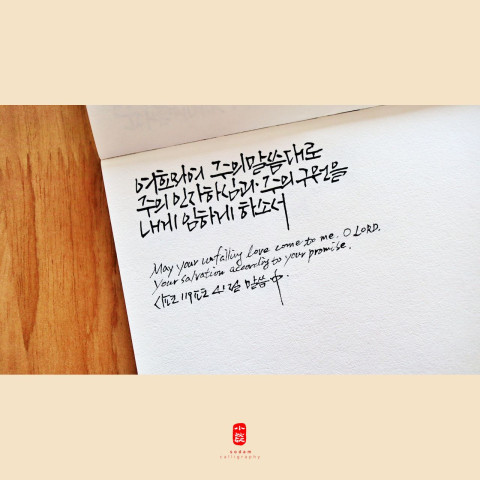 여호와여 주의 말씀대로
주의 인자하심과 주의 구원을
내게 임하게 하소서
May your unfailing love come to me. O LORD.
Your salvation according to your promise.
시편 119편 41절 말씀 中.
sodam
calligraphy